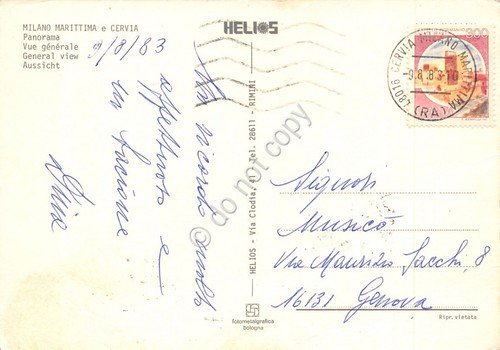 MILANO MARITTIMA e CERVIA
Panorama
Vue générale
General view
Aussicht
9/8/83
Un ricordo molto
affettuoso e
un bacione
HELIOS
HELIOS - Via Clodia, 41 - Tel. 28611 - RIMINI
fotometalgrafica
bologna
300
48016 CERVIA MILANO MARITTIMA (RA)
-9.8.83-10
Signori
Musicò
Via Maurizio Sacchi, 8
16131 Genova
Ripr. vietata
do not copy